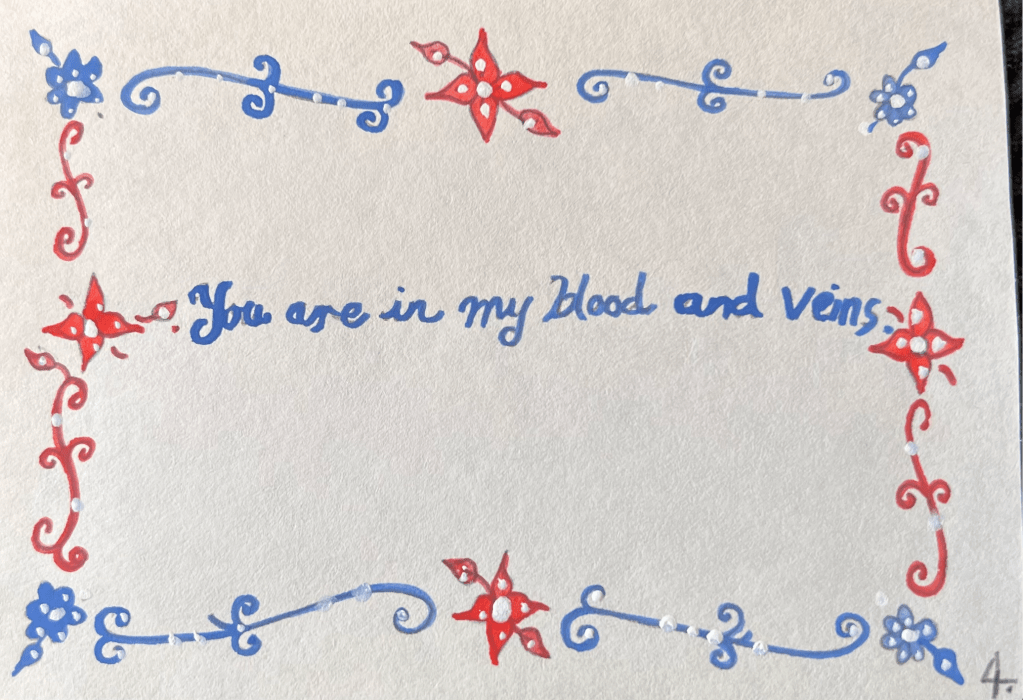 You are in my blood and veins.
4.